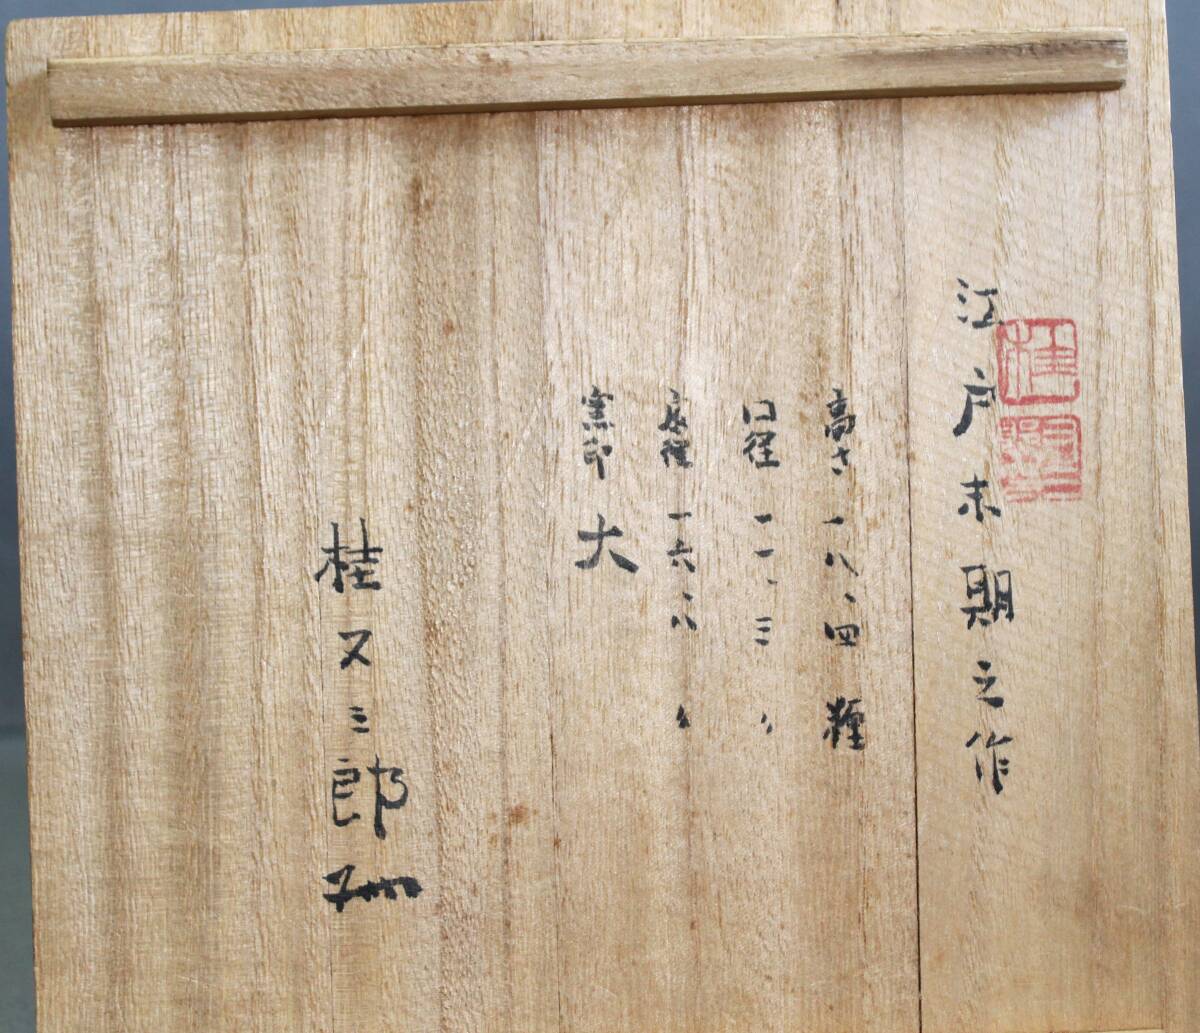 江戸末期之作
高さ 一八、四 糎
口径 一一、三 〃
底径 一六、八 〃
窯印 大
桂又三郎
桂